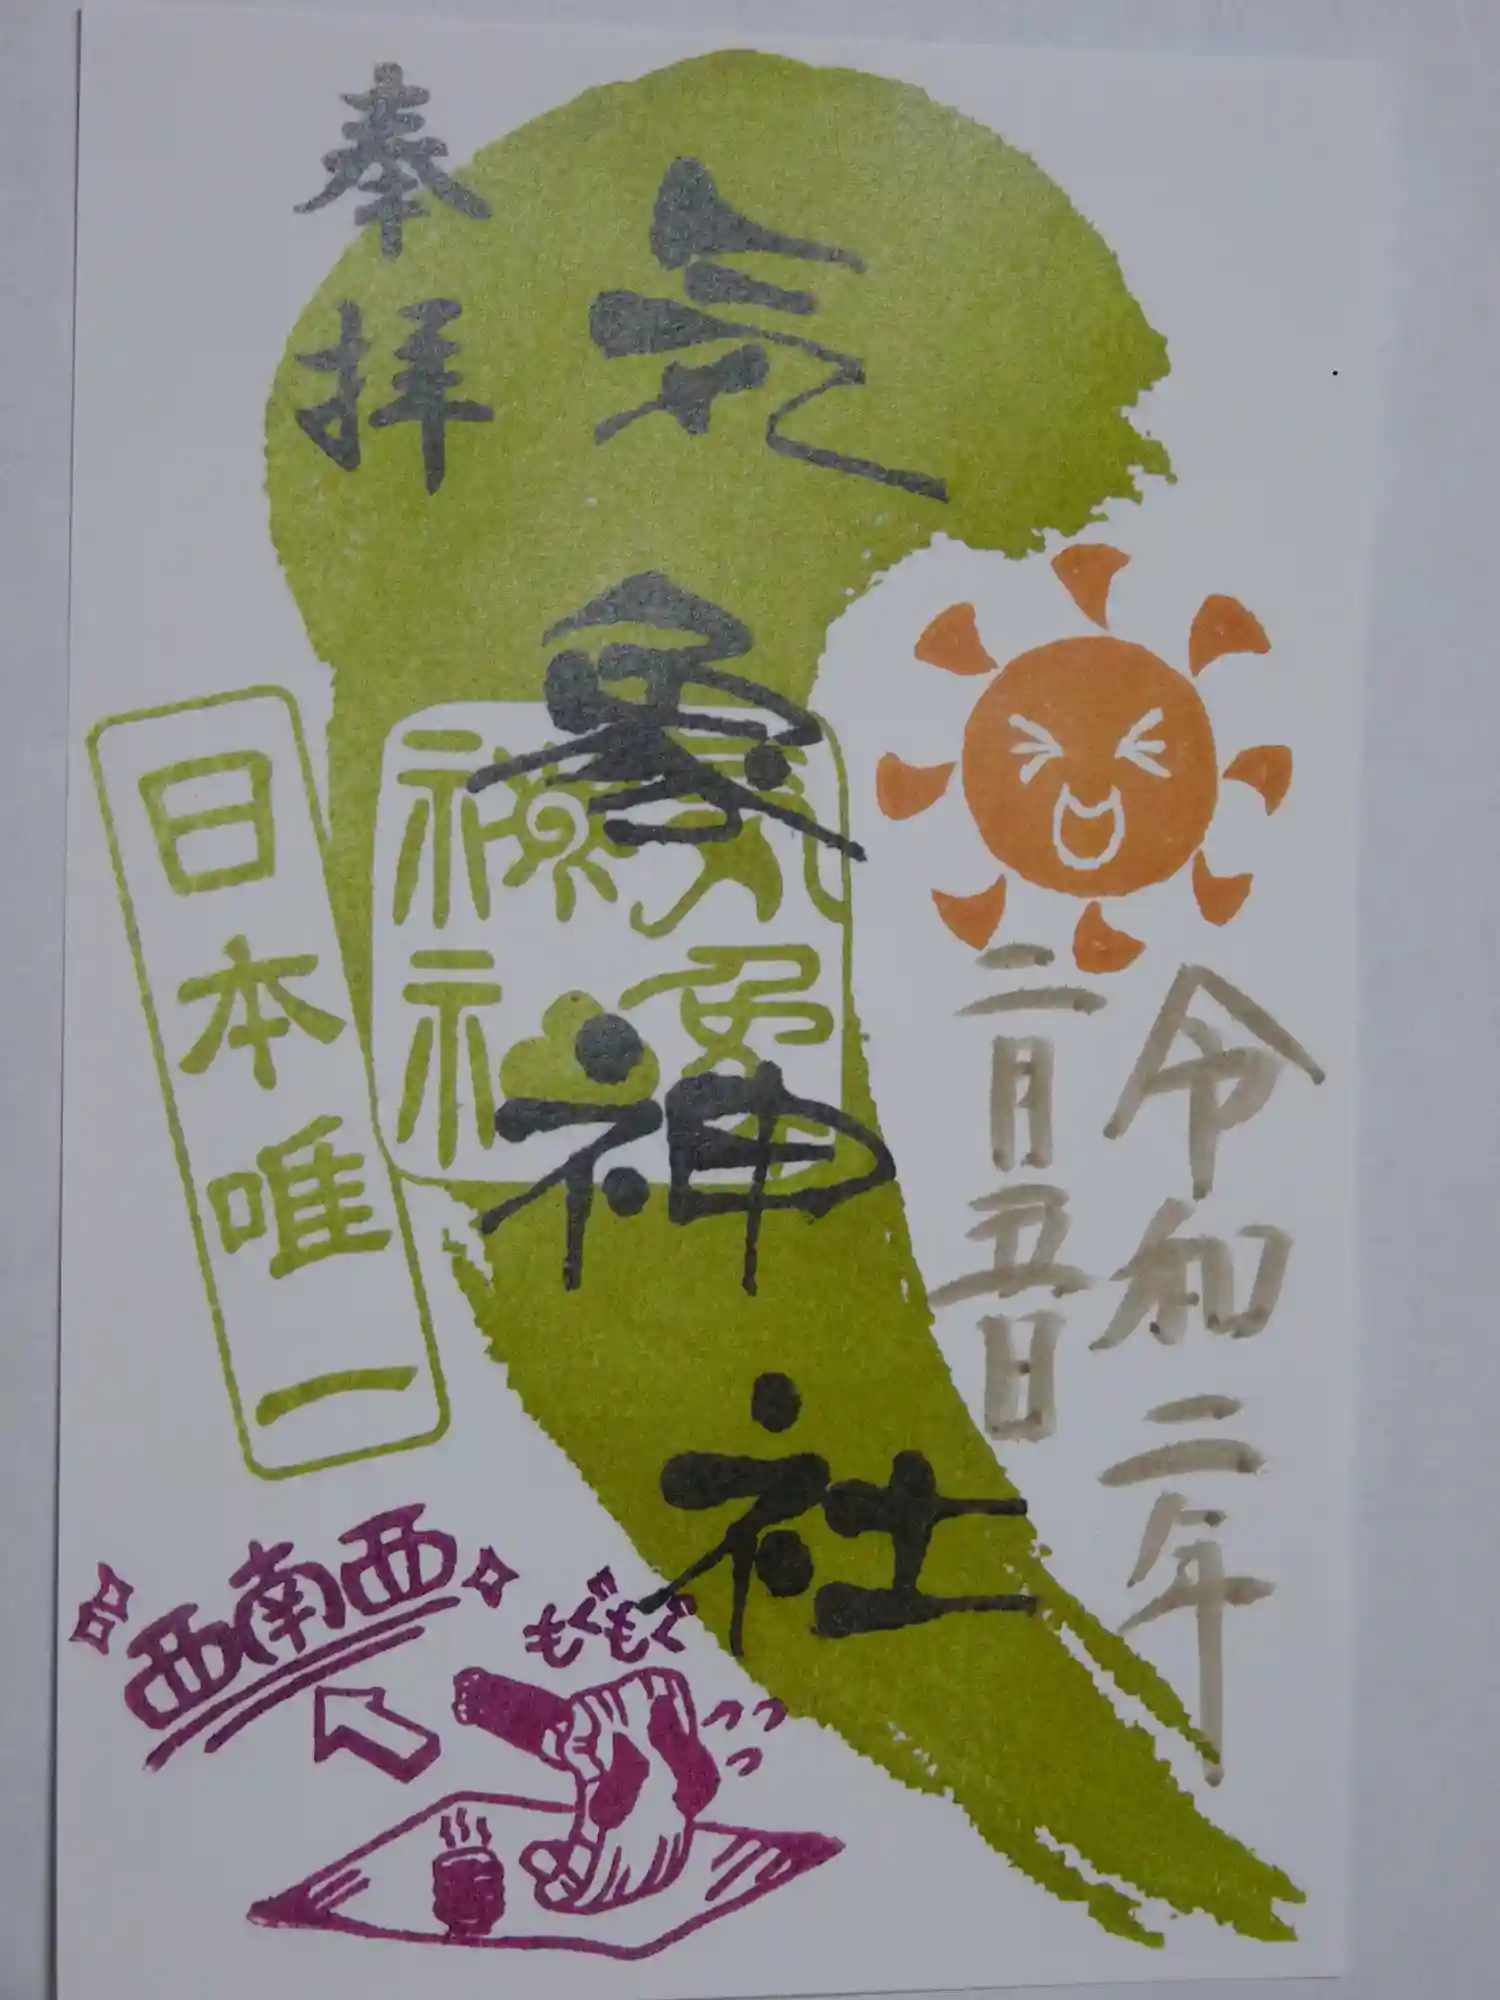 令和二年
二月五日
気象神社
気象
神社
奉拝
日本唯一
西南西
もぐもぐ